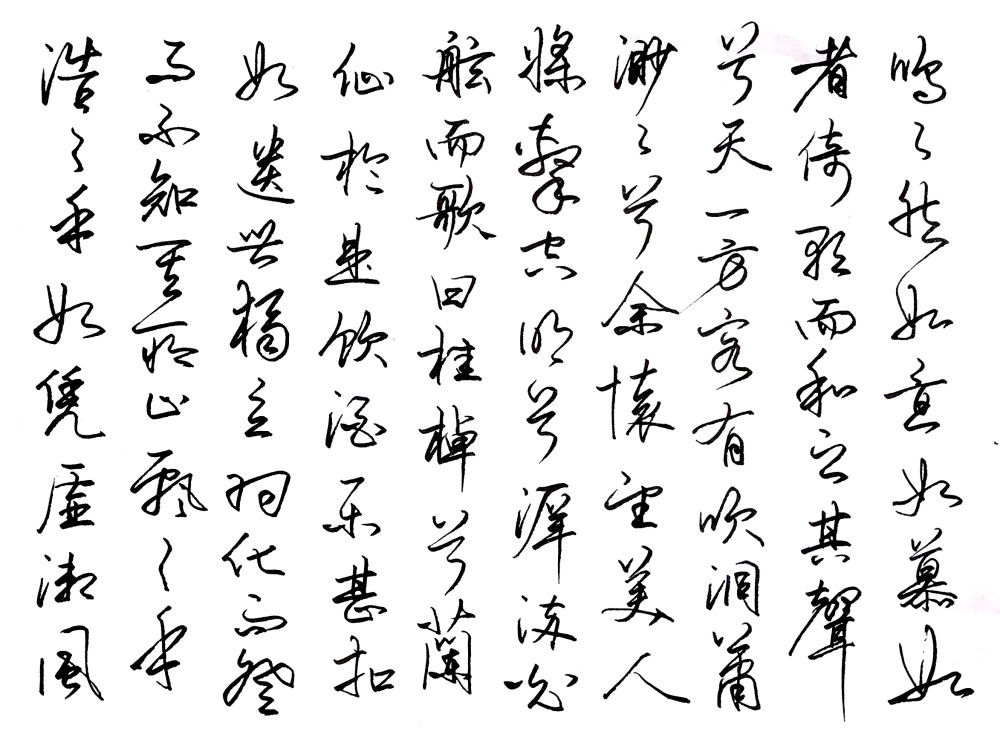 浩〻乎如凭虚御風
而不知其所止飄〻乎
如遺世獨立羽化而登
仙於是飲酒樂甚扣
舷而歌曰桂棹兮蘭
槳擊空明兮溯流光
渺〻兮余懷望美人
兮天一方客有吹洞簫
者倚歌而和之其聲
嗚〻然如怨如慕如